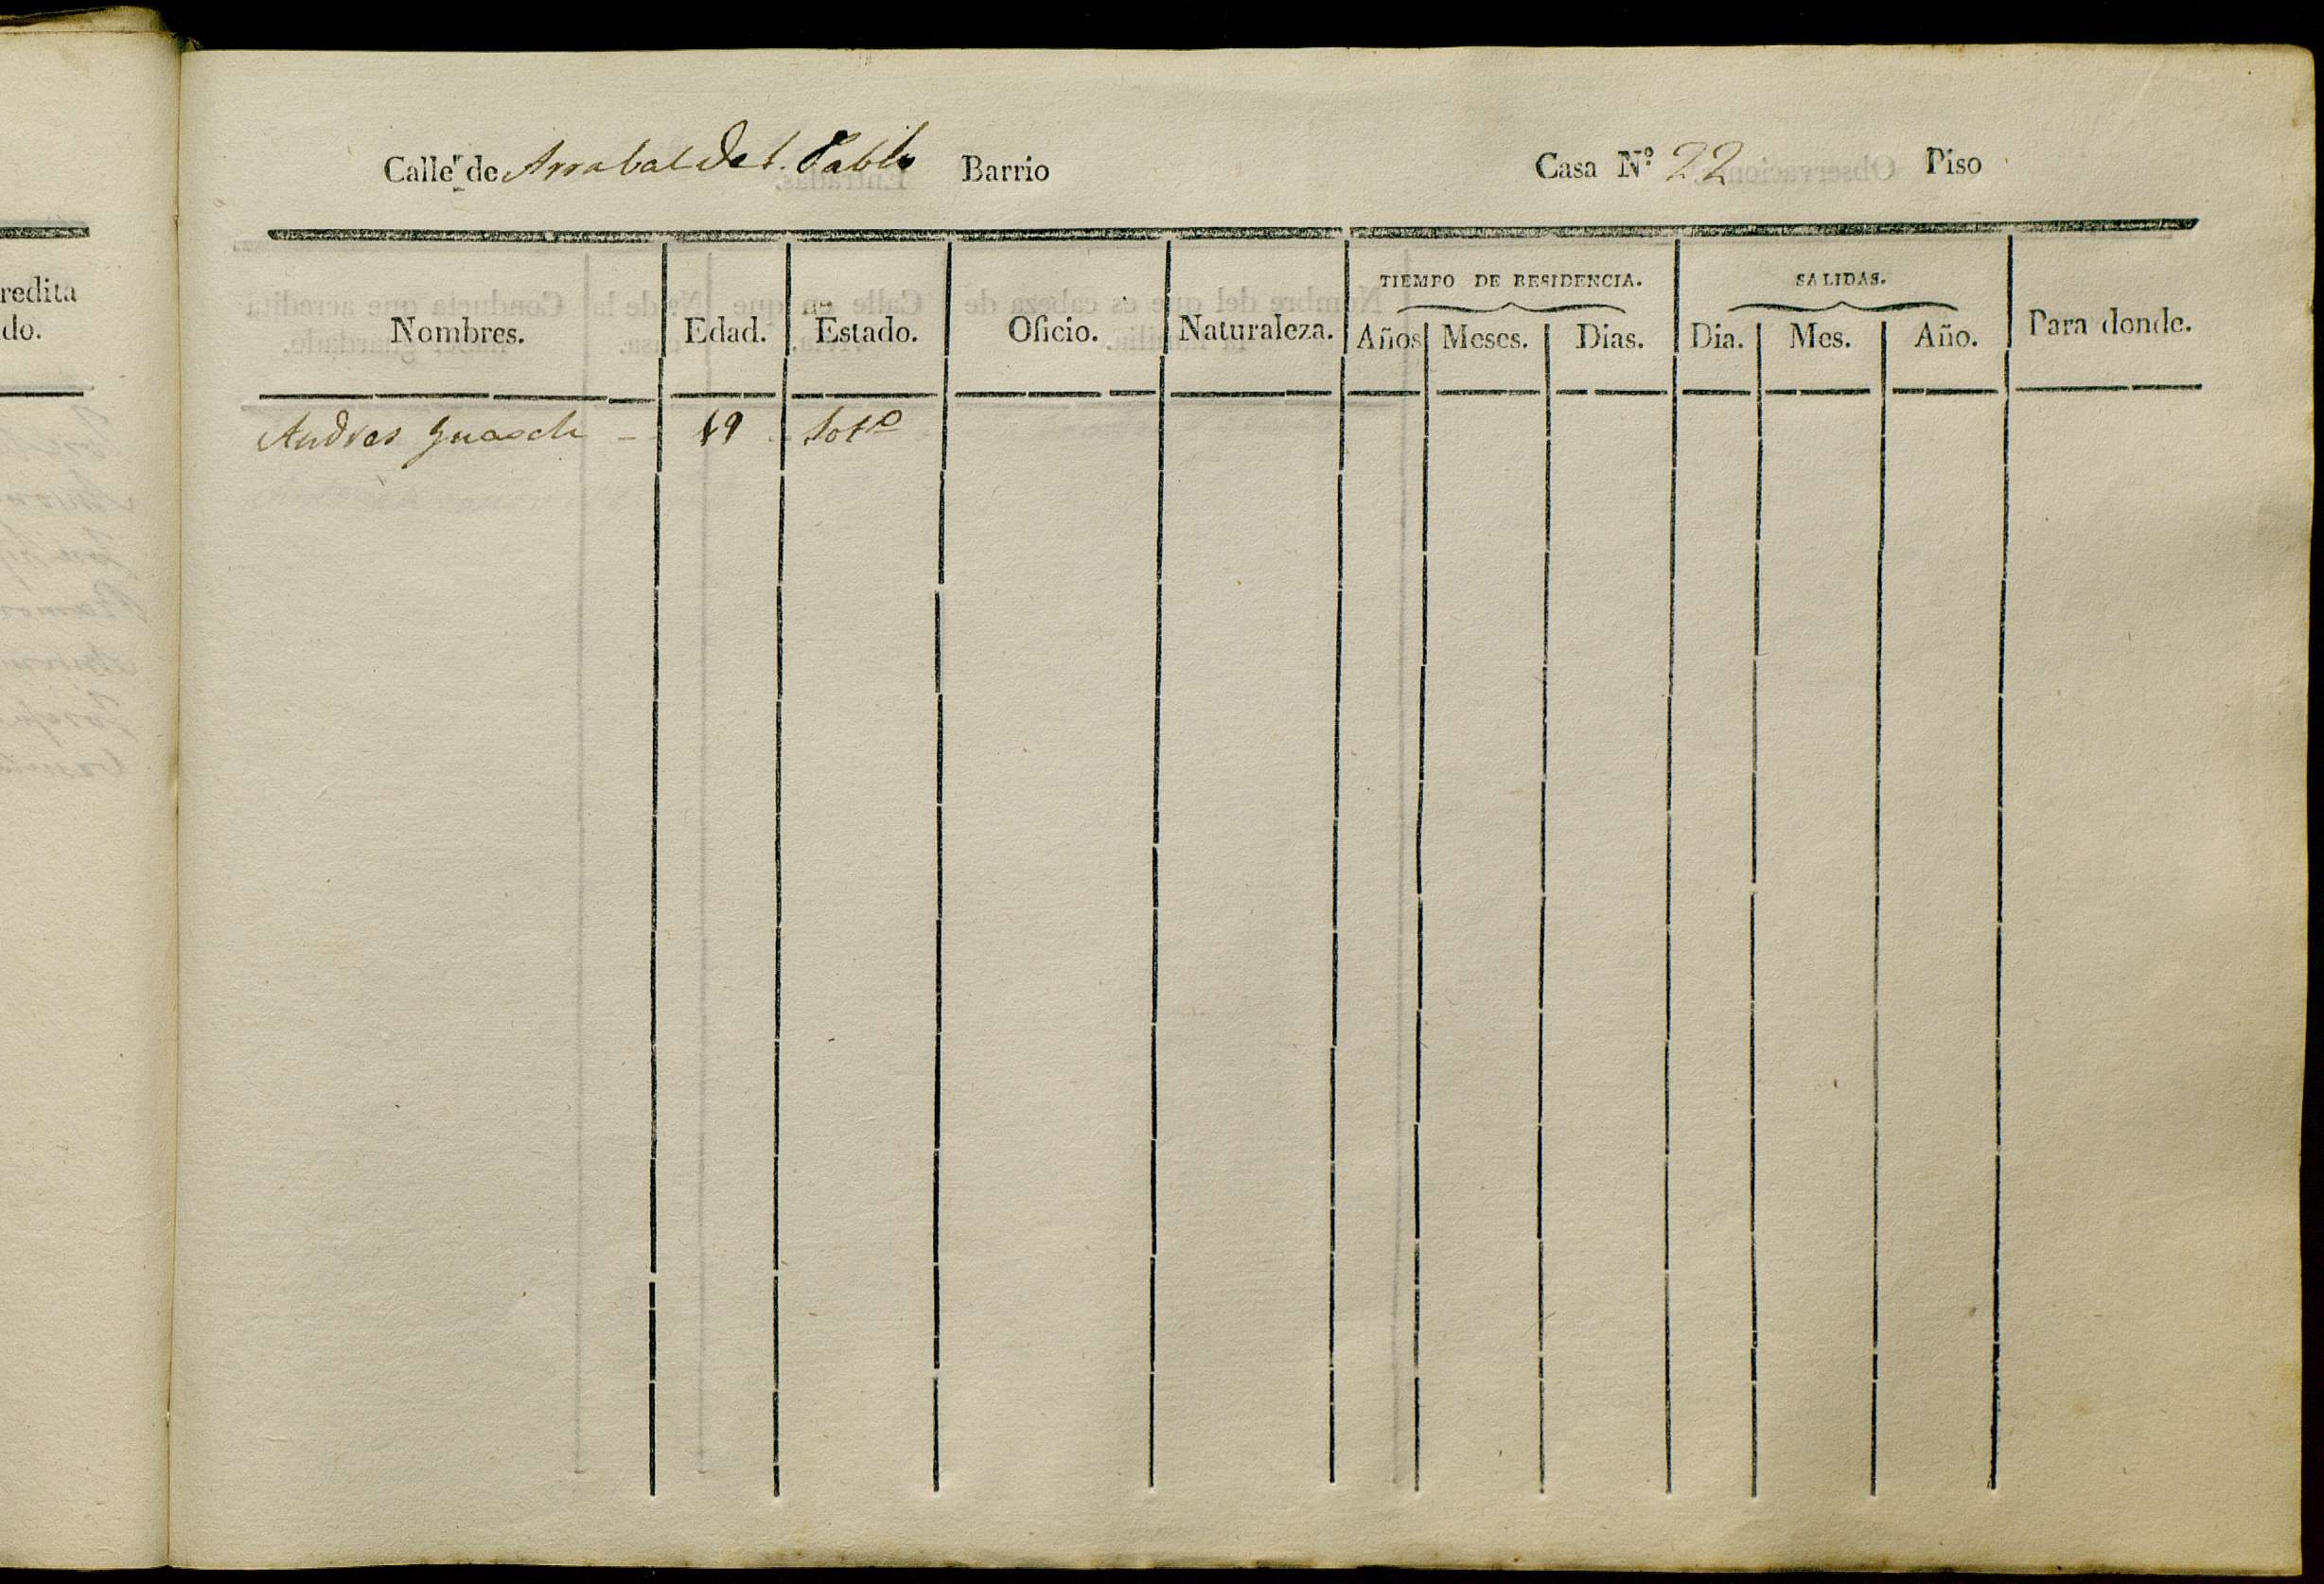 redita
do.
Calle de Arrabal de S. Pablo Barrio Casa Nº 22 Piso
TIEMPO DE RESIDENCIA. SALIDAS.
Nombres. Edad. Estado. Oficio. Naturaleza. Años Meses. Dias. Dia. Mes. Año. Para donde.
Andres Guasch - Solº